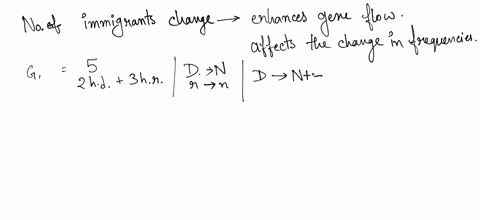 No. of immigrants change → enhances gene flow.
affects the change in frequencies.
G₁ = 5 | D. → N | D → N+-
2h.d. + 3h.r. | r → n